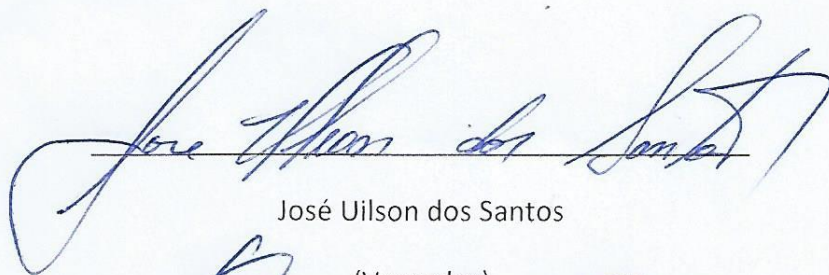 José Uilson dos Santos
José Uilson dos Santos